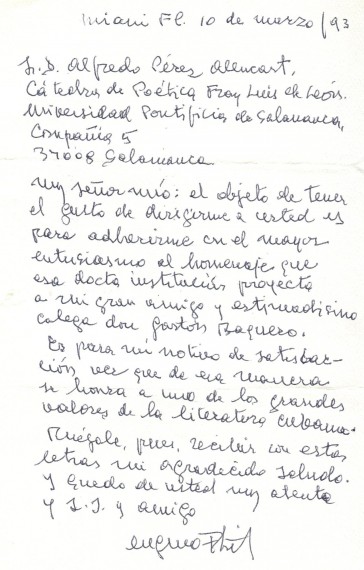 Miami Fl. 10 de marzo/93
S.D. Alfredo Pérez Alencart,
Cátedra de Poética Fray Luis de León.
Universidad Pontificia de Salamanca,
Compañía 5
37008 Salamanca
Muy señor mío: el objeto de tener
el gusto de dirigirme a usted es
para adherirme con el mayor
entusiasmo al homenaje que
esa docta institución proyecta
a mi gran amigo y estimadísimo
colega don Gastón Baquero.
Es para mí motivo de satisfac-
ción ver que de esa manera
se honra a uno de los grandes
valores de la literatura cubana.
Ruégole, pues, recibir con estas
letras mi agradecido saludo.
Y quedo de usted muy atento
y S.S. y amigo